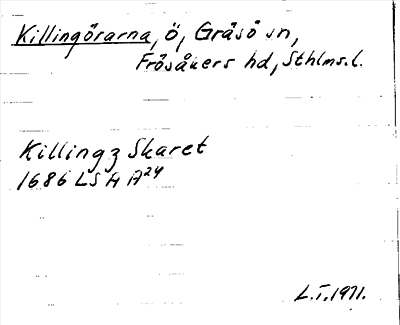 Killingörarna, ö, Gräsö sn,
Frösåkers hd, Sthlms.l.
Killingz Skaret
1686 LSA A24
L.I.1971.